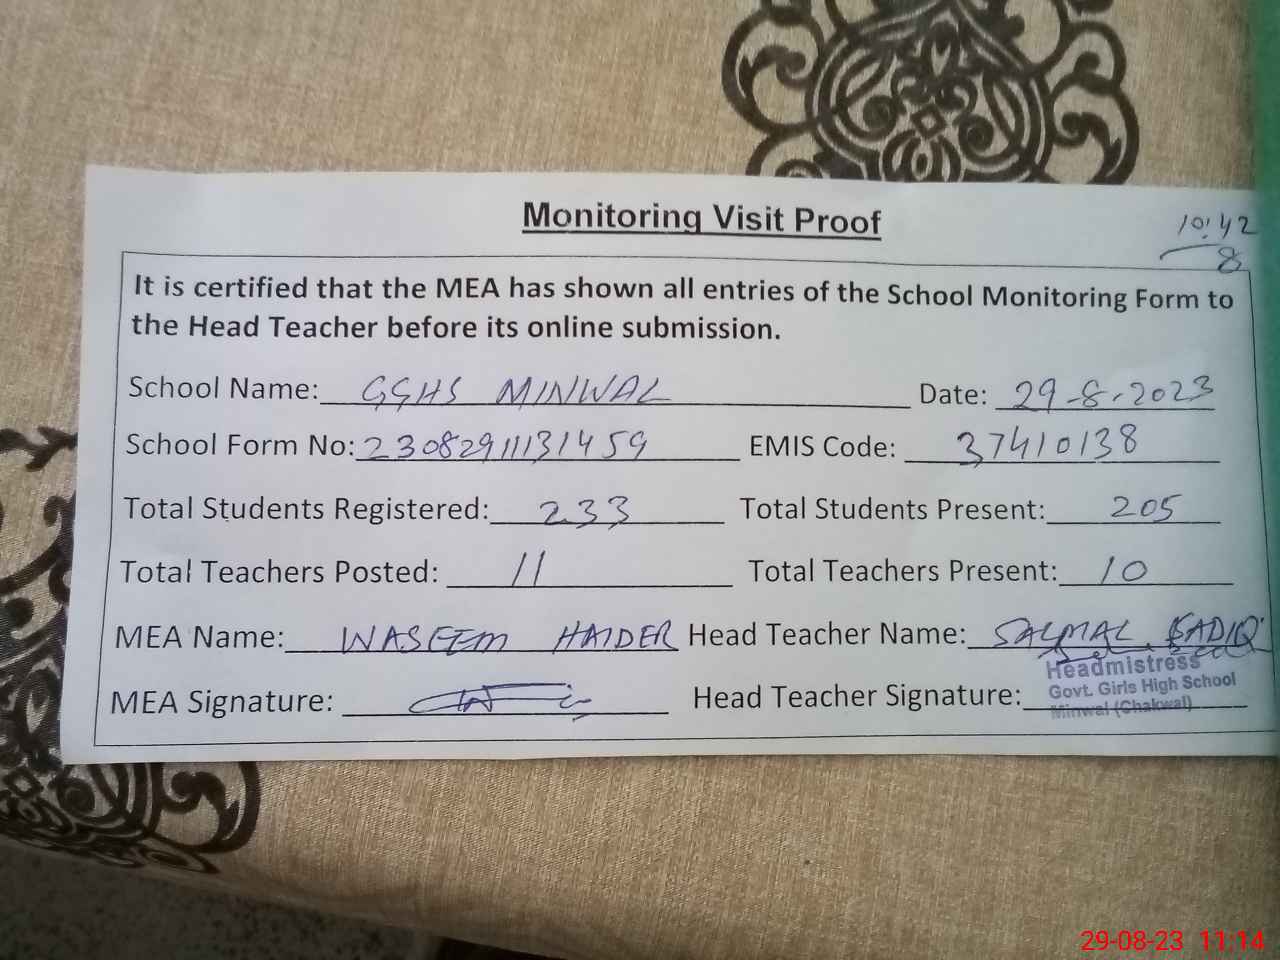 Monitoring Visit Proof
10:42
8
It is certified that the MEA has shown all entries of the School Monitoring Form to
the Head Teacher before its online submission.
School Name: GGHS MINWAL Date: 29-8-2023
School Form No: 23082911131459 EMIS Code: 37410138
Total Students Registered: 233 Total Students Present: 205
Total Teachers Posted: 11 Total Teachers Present: 10
MEA Name: WASEEM HAIDER Head Teacher Name: SALMAL SADIQ
MEA Signature: Head Teacher Signature:
Headmistress
Govt. Girls High School
Minwal (Chakwal)
29-08-23 11:14